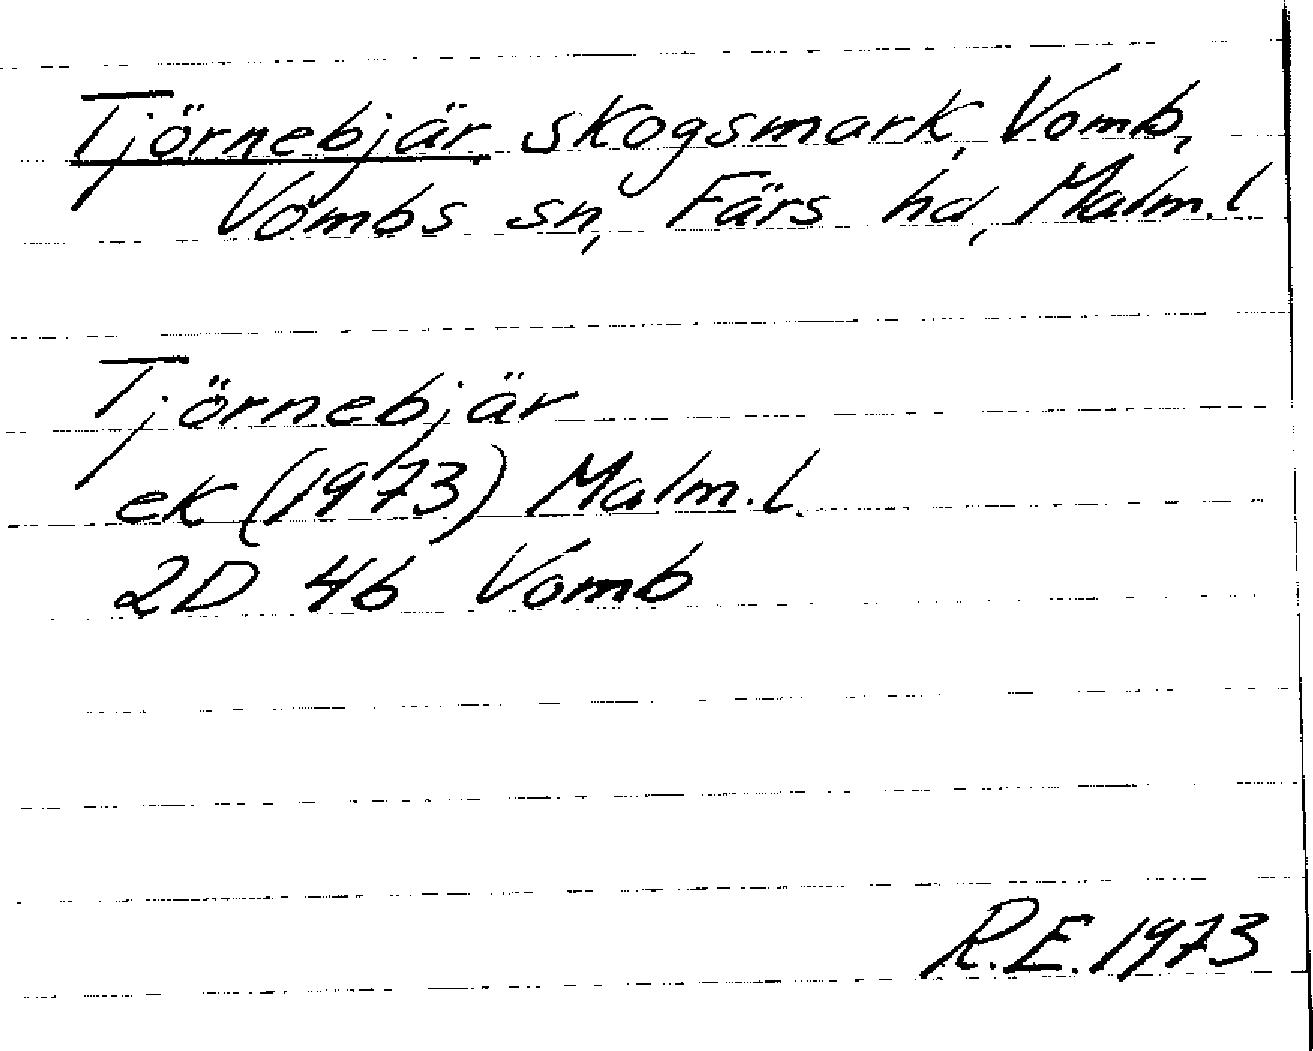 Tjörnebjär, skogsmark, Vomb,
Vombs sn, Färs hd, Malm.l
Tjörnebjär
ek (1973) Malm.l.
2D 4b Vomb
R.E. 1973